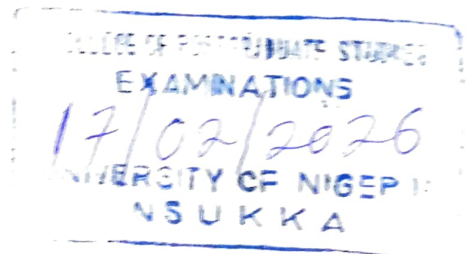 OF POSTGRADUATE STUDIES
EXAMINATIONS
17/02/2026
UNIVERSITY OF NIGERIA
NSUKKA